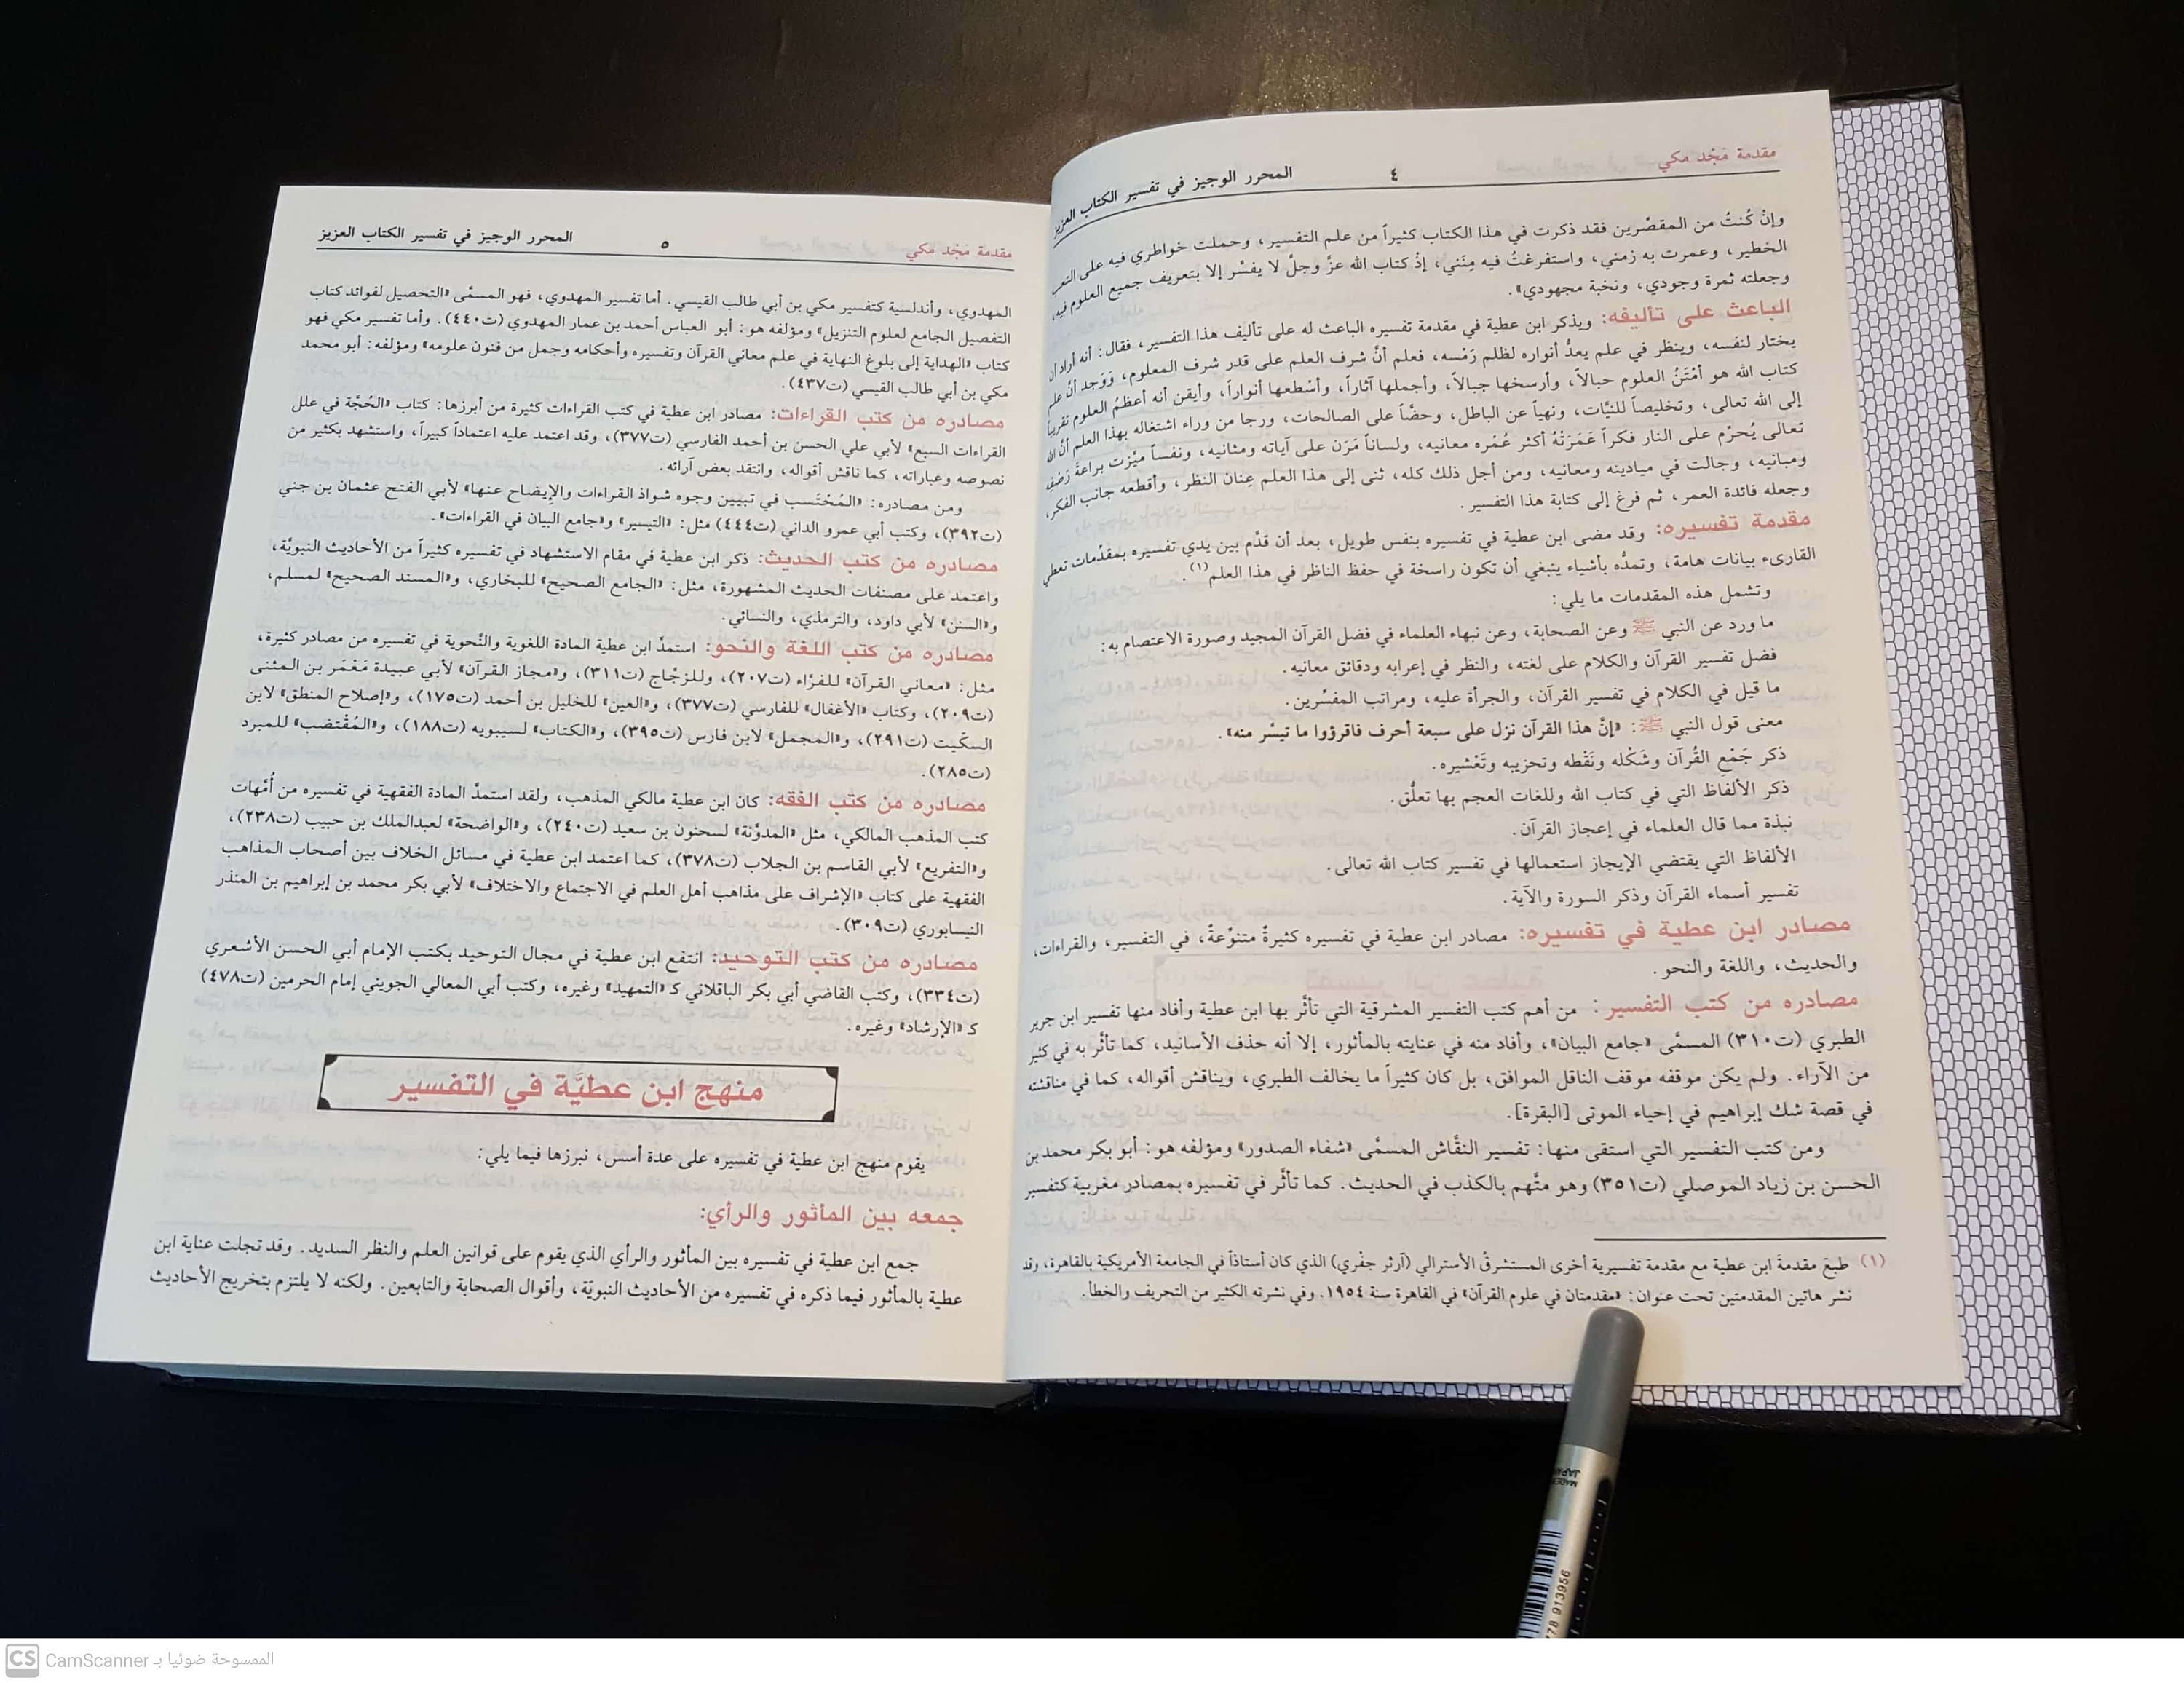 مقدمة مَجْد مكي ٤ المحرر الوجيز في تفسير الكتاب العزيز
وإنْ كُنتُ من المقصِّرين فقد ذكرت في هذا الكتاب كثيراً من علم التفسير، وحملت خواطري فيه على التعب
الخطير، وعمرت به زمني، واستفرغتُ فيه مِنَني، إذْ كتاب الله عزَّ وجلَّ لا يفسَّر إلا بتعريف جميع العلوم فيه،
وجعلته ثمرة وجودي، ونخبة مجهودي».
الباعث على تأليفه: ويذكر ابن عطية في مقدمة تفسيره الباعث له على تأليف هذا التفسير، فقال: أنه أراد أن
يختار لنفسه، وينظر في علم يعدُّ أنواره لظلم رَمْسه، فعلم أنَّ شرف العلم على قدر شرف المعلوم، وَوَجد أنَّ علم
كتاب الله هو أمْتَنُ العلوم حبالاً، وأرسخها جبالاً، وأجملها آثاراً، وأسْطعها أنواراً، وأيقن أنه أعظمُ العلوم تقريباً
إلى الله تعالى، وتخليصاً للنيَّات، ونهياً عن الباطل، وحضّاً على الصالحات، ورجا من وراء اشتغاله بهذا العلم أنَّ الله
تعالى يُحرِّم على النار فكراً عَمَرَتْهُ أكثر عُمْره معانيه، ولساناً مَرَن على آياته ومثانيه، ونفساً ميَّزت براعةَ رَصْفه
ومبانيه، وجالت في ميادينه ومعانيه، ومن أجل ذلك كله، ثنى إلى هذا العلم عِنان النظر، وأقطعه جانب الفكر،
وجعله فائدة العمر، ثم فرغ إلى كتابة هذا التفسير.
مقدمة تفسيره: وقد مضى ابن عطية في تفسيره بنفس طويل، بعد أن قدَّم بين يدي تفسيره بمقدِّمات تعطي
القارىء بيانات هامة، وتمدُّه بأشياء ينبغي أن تكون راسخة في حفظ الناظر في هذا العلم(١).
وتشمل هذه المقدمات ما يلي:
ما ورد عن النبي ﷺ وعن الصحابة، وعن نبهاء العلماء في فضل القرآن المجيد وصورة الاعتصام به:
فضل تفسير القرآن والكلام على لغته، والنظر في إعرابه ودقائق معانيه.
ما قيل في الكلام في تفسير القرآن، والجرأة عليه، ومراتب المفسِّرين.
معنى قول النبي ﷺ: «إنَّ هذا القرآن نزل على سبعة أحرف فاقرؤوا ما تيسَّر منه».
ذكر جَمْع القُرآن وشَكْله ونَقْطه وتحزيبه وتَعْشيره.
ذكر الألفاظ التي في كتاب الله وللغات العجم بها تعلُّق.
نبذة مما قال العلماء في إعجاز القرآن.
الألفاظ التي يقتضي الإيجاز استعمالها في تفسير كتاب الله تعالى.
تفسير أسماء القرآن وذكر السورة والآية.
مصادر ابن عطية في تفسيره: مصادر ابن عطية في تفسيره كثيرةٌ متنوِّعةٌ، في التفسير، والقراءات،
والحديث، واللغة والنحو.
مصادره من كتب التفسير: من أهم كتب التفسير المشرقية التي تأثَّر بها ابن عطية وأفاد منها تفسير ابن جرير
الطبري (ت٣١٠) المسمَّى «جامع البيان»، وأفاد منه في عنايته بالمأثور، إلا أنه حذف الأسانيد، كما تأثَّر به في كثير
من الآراء. ولم يكن موقفه موقف الناقل الموافق، بل كان كثيراً ما يخالف الطبري، ويناقش أقواله، كما في مناقشته
في قصة شك إبراهيم في إحياء الموتى [البقرة].
ومن كتب التفسير التي استقى منها: تفسير النقَّاش المسمَّى «شفاء الصدور» ومؤلفه هو: أبو بكر محمد بن
الحسن بن زياد الموصلي (ت٣٥١) وهو متَّهم بالكذب في الحديث. كما تأثَّر في تفسيره بمصادر مغربية كتفسير
(١) طبعَ مقدمةَ ابن عطية مع مقدمة تفسيرية أخرى المستشرقُ الأسترالي (آرثر جفري) الذي كان أستاذاً في الجامعة الأمريكية بالقاهرة، وقد
نشر هاتين المقدمتين تحت عنوان: «مقدمتان في علوم القرآن» في القاهرة سنة ١٩٥٤. وفي نشرته الكثير من التحريف والخطأ.
مقدمة مَجْد مكي ٥ المحرر الوجيز في تفسير الكتاب العزيز
المهدوي، وأندلسية كتفسير مكي بن أبي طالب القيسي. أما تفسير المهدوي، فهو المسمَّى «التحصيل لفوائد كتاب
التفصيل الجامع لعلوم التنزيل» ومؤلفه هو: أبو العباس أحمد بن عمار المهدوي (ت٤٤٠). وأما تفسير مكي فهو
كتاب «الهداية إلى بلوغ النهاية في علم معاني القرآن وتفسيره وأحكامه وجمل من فنون علومه» ومؤلفه: أبو محمد
مكي بن أبي طالب القيسي (ت٤٣٧).
مصادره من كتب القراءات: مصادر ابن عطية في كتب القراءات كثيرة من أبرزها: كتاب «الحُجَّة في علل
القراءات السبع» لأبي علي الحسن بن أحمد الفارسي (ت٣٧٧)، وقد اعتمد عليه اعتماداً كبيراً، واستشهد بكثير من
نصوصه وعباراته، كما ناقش أقواله، وانتقد بعض آرائه.
ومن مصادره: «المُحْتَسب في تبيين وجوه شواذ القراءات والإيضاح عنها» لأبي الفتح عثمان بن جني
(ت٣٩٢)، وكتب أبي عمرو الداني (ت٤٤٤) مثل: «التيسير» و«جامع البيان في القراءات».
مصادره من كتب الحديث: ذكر ابن عطية في مقام الاستشهاد في تفسيره كثيراً من الأحاديث النبويَّة،
واعتمد على مصنفات الحديث المشهورة، مثل: «الجامع الصحيح» للبخاري، و«المسند الصحيح» لمسلم،
و«السنن» لأبي داود، والترمذي، والنسائي.
مصادره من كتب اللغة والنحو: استمدَّ ابن عطية المادة اللغوية والنَّحوية في تفسيره من مصادر كثيرة،
مثل: «معاني القرآن» للفرَّاء (ت٢٠٧)، وللزجَّاج (ت٣١١)، و«مجاز القرآن» لأبي عبيدة مَعْمَر بن المثنى
(ت٢٠٩)، وكتاب «الأغفال» للفارسي (ت٣٧٧)، و«العين» للخليل بن أحمد (ت١٧٥)، و«إصلاح المنطق» لابن
السكّيت (ت٢٩١)، و«المجمل» لابن فارس (ت٣٩٥)، و«الكتاب» لسيبويه (ت١٨٨)، و«المُقْتضب» للمبرد
(ت٢٨٥).
مصادره من كتب الفقه: كان ابن عطية مالكي المذهب، ولقد استمدَّ المادة الفقهية في تفسيره من أمَّهات
كتب المذهب المالكي، مثل «المدوَّنة» لسحنون بن سعيد (ت٢٤٠)، و«الواضحة» لعبدالملك بن حبيب (ت٢٣٨)،
و«التفريع» لأبي القاسم بن الجلاب (ت٣٧٨)، كما اعتمد ابن عطية في مسائل الخلاف بين أصحاب المذاهب
الفقهية على كتاب «الإشراف على مذاهب أهل العلم في الاجتماع والاختلاف» لأبي بكر محمد بن إبراهيم بن المنذر
النيسابوري (ت٣٠٩).
مصادره من كتب التوحيد: انتفع ابن عطية في مجال التوحيد بكتب الإمام أبي الحسن الأشعري
(ت٣٣٤)، وكتب القاضي أبي بكر الباقلاني كـ «التمهيد» وغيره، وكتب أبي المعالي الجويني إمام الحرمين (ت٤٧٨)
كـ «الإرشاد» وغيره.
منهج ابن عطيَّة في التفسير
يقوم منهج ابن عطية في تفسيره على عدة أسس، نبرزها فيما يلي:
جمعه بين المأثور والرأي:
جمع ابن عطية في تفسيره بين المأثور والرأي الذي يقوم على قوانين العلم والنظر السديد. وقد تجلت عناية ابن
عطية بالمأثور فيما ذكره في تفسيره من الأحاديث النبويّة، وأقوال الصحابة والتابعين. ولكنه لا يلتزم بتخريج الأحاديث
MADE
JAPAN
778 913956
CS CamScanner الممسوحة ضوئيا بـ